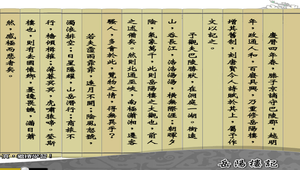 慶曆四年春，滕子京謫守巴陵郡。越明
年，政通人和，百廢具興，乃重修岳陽樓，
增其舊制，刻唐賢今人詩賦於其上；屬予作
文以記之。
予觀夫巴陵勝狀，在洞庭一湖。銜遠
山，吞長江，浩浩湯湯，橫無際涯；朝暉夕
陰，氣象萬千；此則岳陽樓之大觀也，前人
之述備矣。然則北通巫峽，南極瀟湘，遷客
騷人，多會於此，覽物之情，得無異乎？
若夫霪雨霏霏，連月不開；陰風怒號，
濁浪排空；日星隱耀，山岳潛行；商旅不
行，檣傾楫摧；薄暮冥冥，虎嘯猿啼；登斯
樓也，則有去國懷鄉，憂讒畏譏，滿目蕭
然，感極而悲者矣。
岳陽樓記